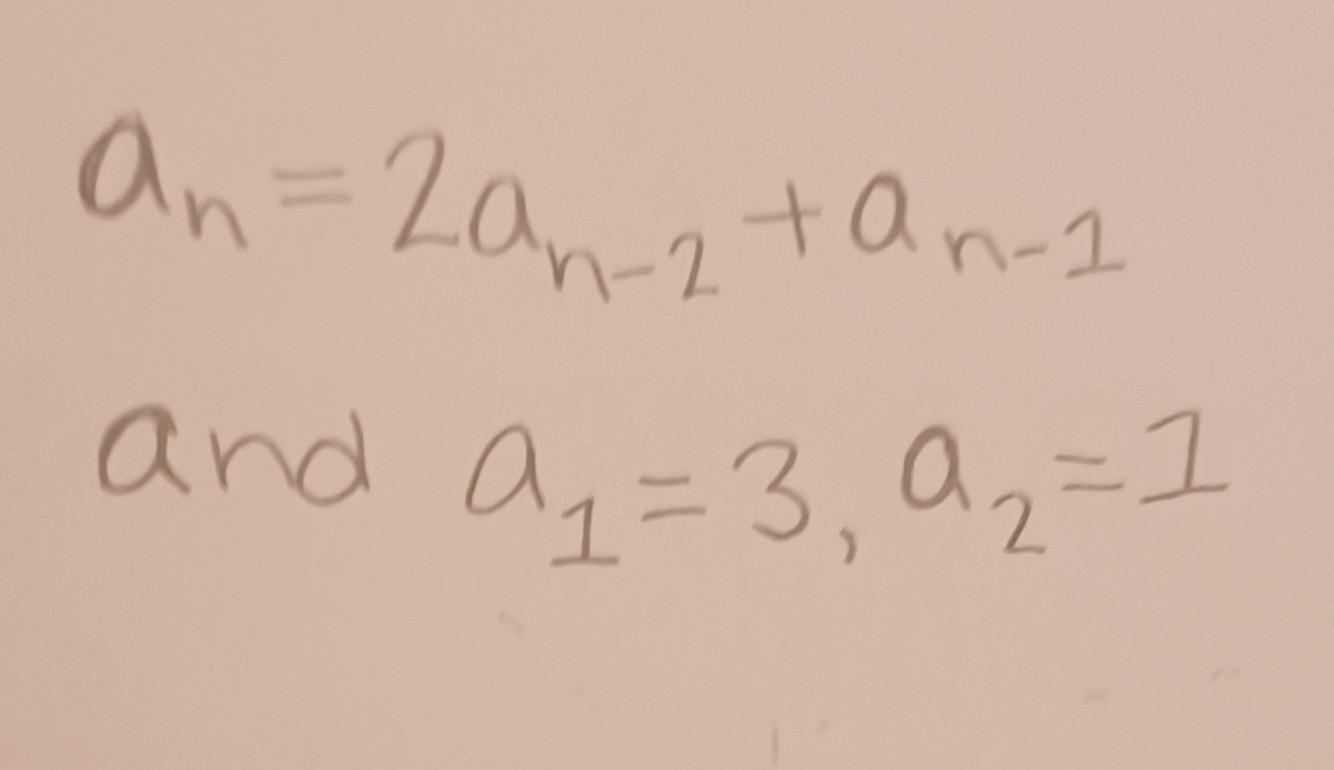 aₙ = 2aₙ₋₂ + aₙ₋₁
and a₁ = 3, a₂ = 1